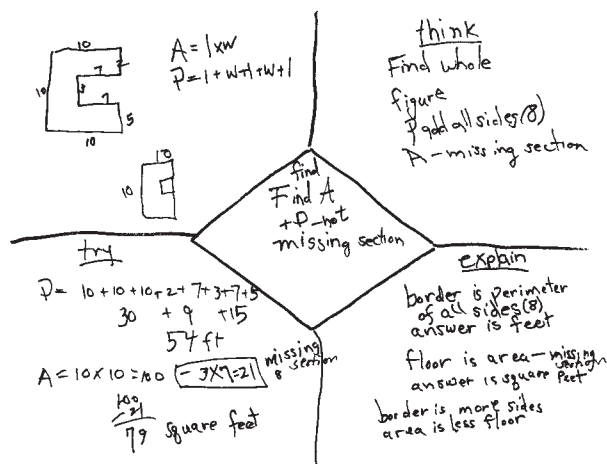 10
2
7
10
3
7
5
10
A = l x w
P = l + w + l + w + l
10
10
think
Find whole
figure
P add all sides (8)
A - missing section
find
Find A
+ P - not
missing section
try
P = 10 + 10 + 10 + 2 + 7 + 3 + 7 + 5
30 + 9 + 15
54 ft
A = 10 x 10 = 100 - 3 x 7 = 21 missing
section
100
- 21
79 square feet
explain
border is perimeter
of all sides (8)
answer is feet
floor is area - missing
section
answer is square feet
border is more sides
area is less floor